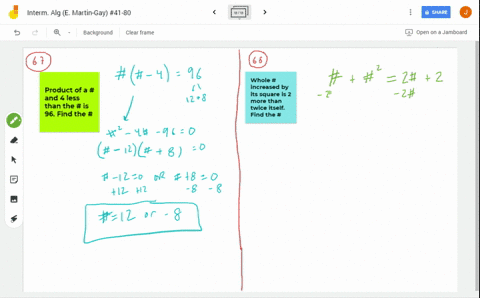 Interm. Alg (E. Martin-Gay) #41-80
SHARE
J
Background
Clear frame
Open on a Jamboard
67
Product of a #
and 4 less
than the # is
96. Find the #
#(#-4) = 96
12 * 8
#² - 4# - 96 = 0
(# - 12)(# + 8) = 0
# - 12 = 0 or # + 8 = 0
+12 +12 -8 -8
# = 12 or -8
66
Whole #
increased by
its square is 2
more than
twice itself.
Find the #
# + #² = 2# + 2
-2#